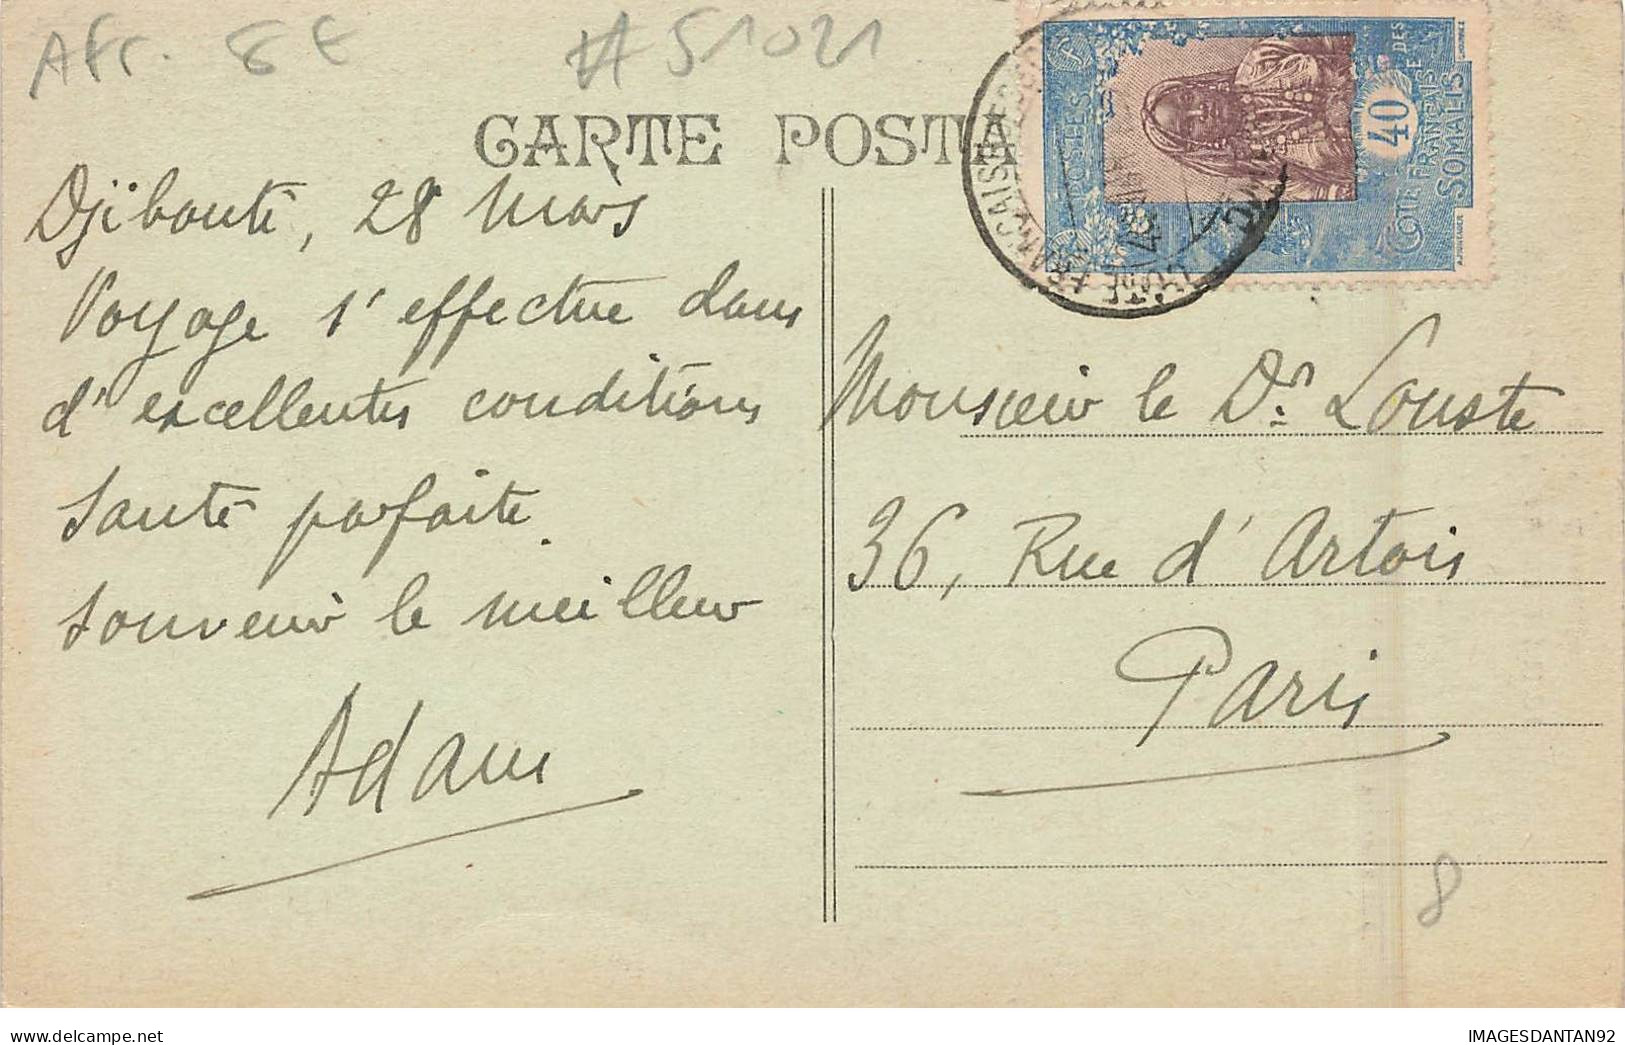 Afr. 8€
#51021
CARTE POSTA
POSTES
40
CÔTE FRANÇAISE DES
SOMALIS
Djibouti, 28 Mars
Voyage s'effectue dans
d'excellentes conditions
Santé parfaite.
Souvenir le meilleur
Adam
Monsieur le Dr. Louste
36, Rue d'Artois
Paris
8
www.delcampe.net
IMAGESDANTAN92